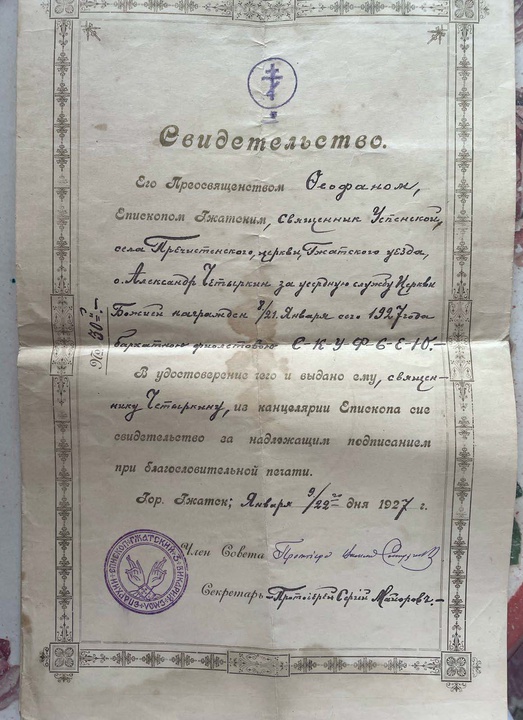 Свидетельство.
Его Преосвященством Ѳеофаном,
Епископом Гжатским, священник Успенской,
села Пречистенского, церкви, Гжатского уезда,
о. Александр Четыркин за усердную службу Церкви
Божией награжден 8/21 Января сего 1927 года
бархатною фиолетовою С-К-У-Ф-Ь-Е-Ю.-
В удостоверение чего и выдано ему, священ-
нику Четыркину, из канцелярии Епископа сие
свидетельство за надлежащим подписанием
при благословительной печати.
Гор. Гжатск; Января 9/22 дня 1927 г.
Член Совета
Секретарь Протоіерей Сергій Майоровъ.-
№ 50
ЕПИСКОП ГЖАТСКИЙ ВИКАРИЙ ЕПАРХИИ